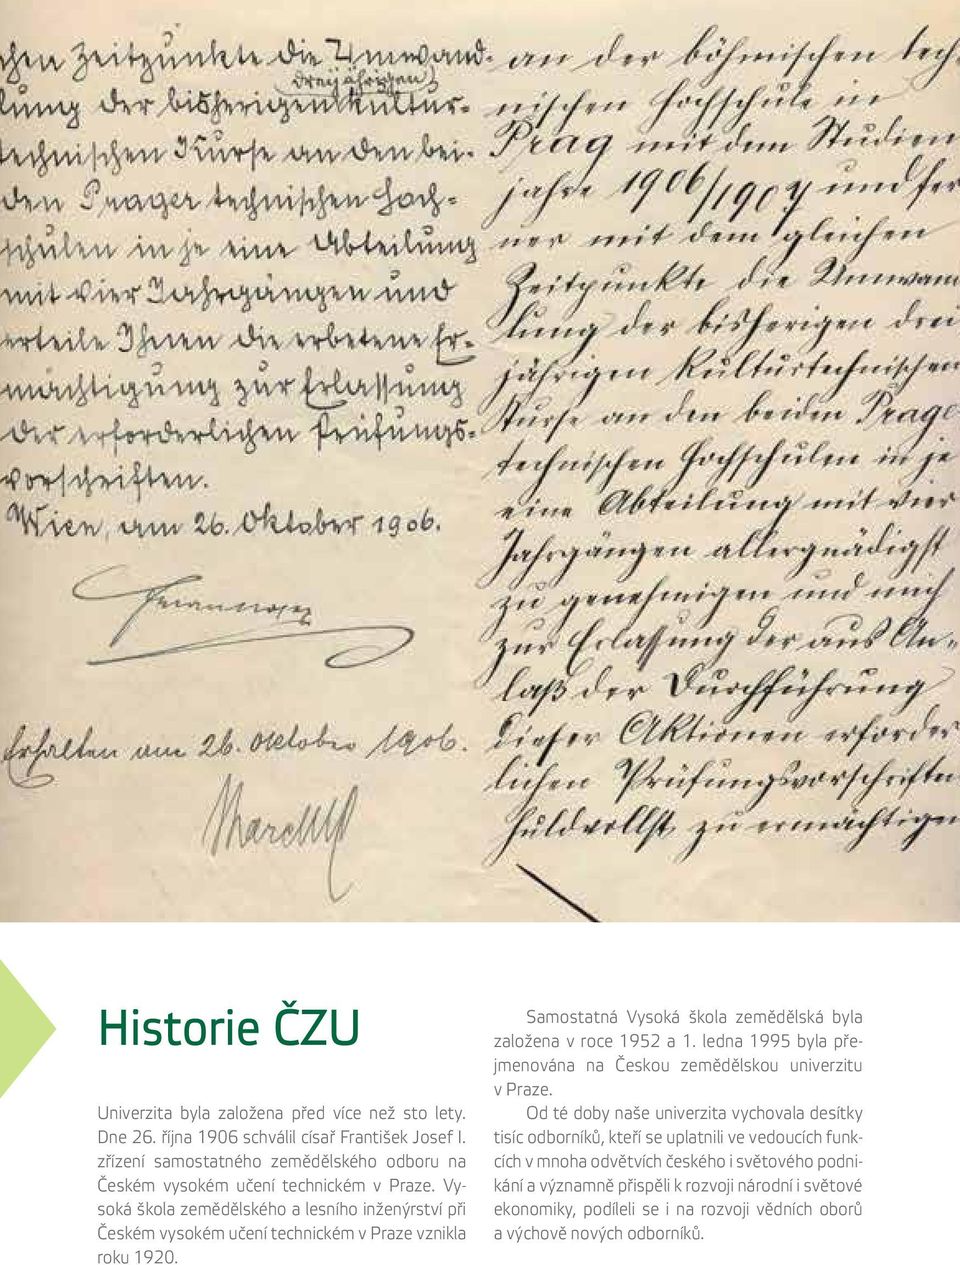 chen Zeitpunkte die Umwand-
lung der bisherigen dreijährigen kultur-
technischen Kurse an den bei-
den Prager technischen Hoch-
schulen in je eine Abteilung
mit vier Jahrgängen und
erteile Ihnen die erbetene Er-
mächtigung zur Erlassung
der erforderlichen Prüfungs-
vorschriften.
Wien, am 26. Oktober 1906.
Erhalten am 26. Oktober 1906.
an der böhmischen tech-
nischen Hochschule in
Prag mit dem Studien
jahre 1906/1907 und fer
ner mit dem gleichen
Zeitpunkte die Umwand
lung der bisherigen drei
jährigen kulturtechnischen
Kurse an den beiden Prage
technischen Hochschulen in je
eine Abteilung mit vier
Jahrgängen allergnädigst
zu genehmigen und mich
zur Erlassung der aus An-
laß der Durchführung
dieser Aktionen erforder
lichen Prüfungsvorschriften
huldvollst zu ermächtigen
Historie ČZU
Univerzita byla založena před více než sto lety.
Dne 26. října 1906 schválil císař František Josef I.
zřízení samostatného zemědělského odboru na
Českém vysokém učení technickém v Praze. Vy-
soká škola zemědělského a lesního inženýrství při
Českém vysokém učení technickém v Praze vznikla
roku 1920.
Samostatná Vysoká škola zemědělská byla
založena v roce 1952 a 1. ledna 1995 byla pře-
jmenována na Českou zemědělskou univerzitu
v Praze.
Od té doby naše univerzita vychovala desítky
tisíc odborníků, kteří se uplatnili ve vedoucích funk-
cích v mnoha odvětvích českého i světového podni-
kání a významně přispěli k rozvoji národní i světové
ekonomiky, podíleli se i na rozvoji vědních oborů
a výchově nových odborníků.